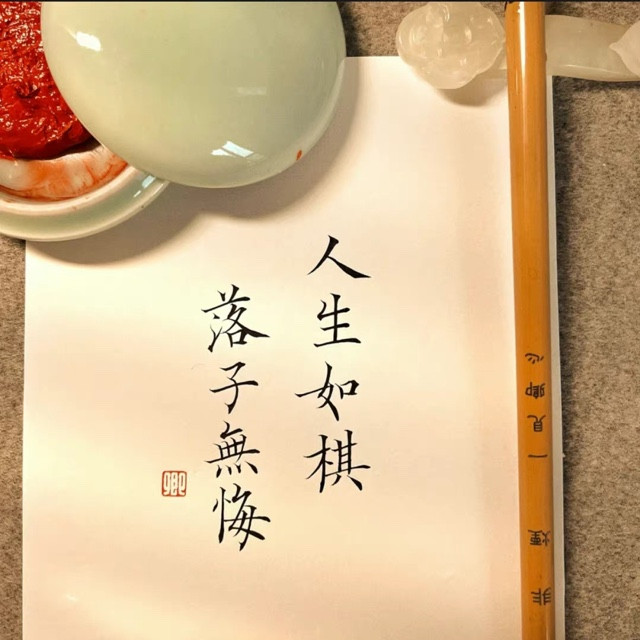 人生如棋
落子無悔
非煙 一見卿心